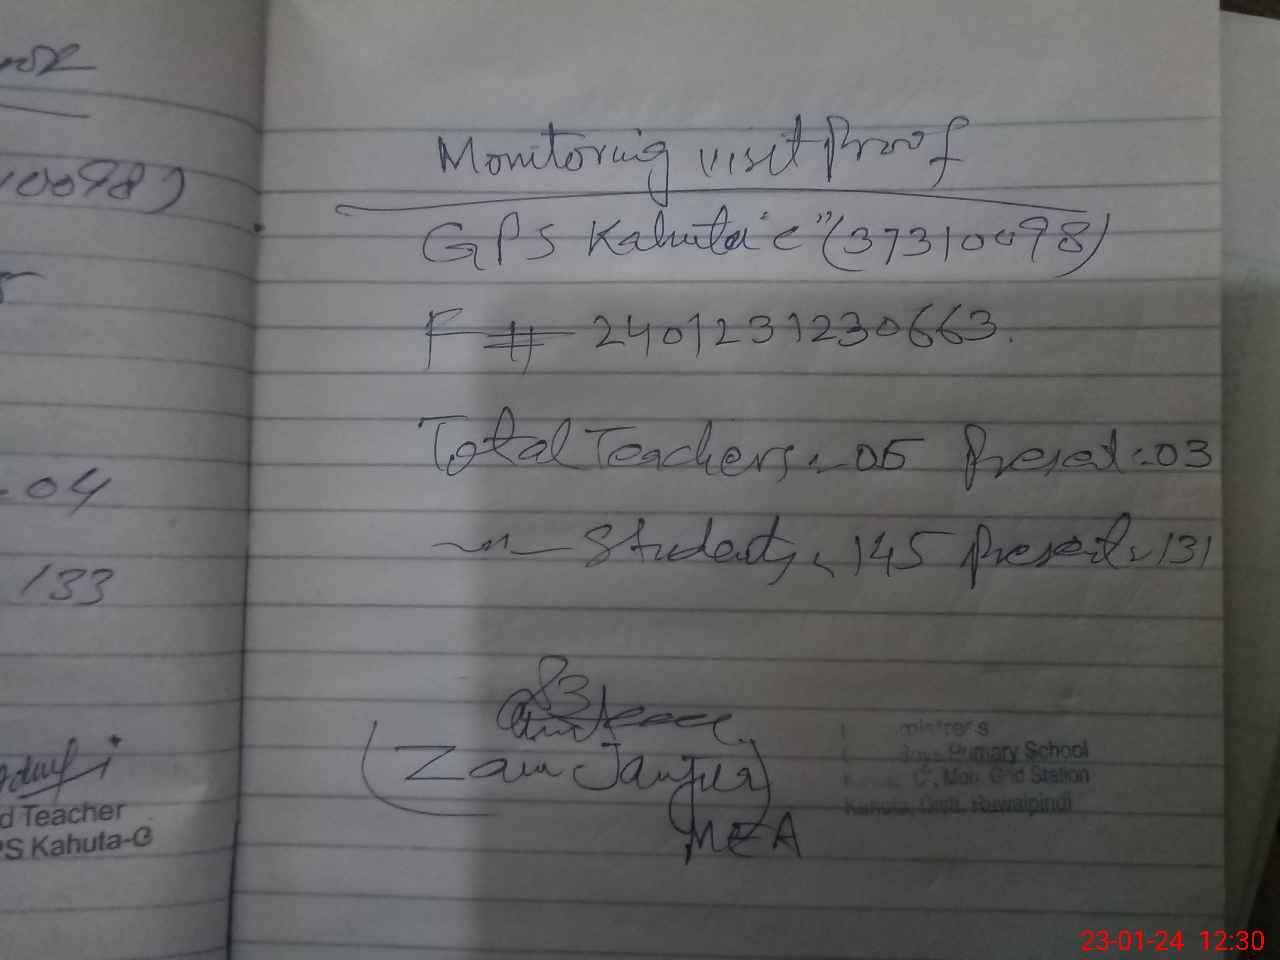 10098)
04
133
d Teacher
PS Kahuta-C
Monitoring visit Proof
GPS Kahuta "C" (37310098)
F # 2401231230663.
Total Teachers = 05 Present = 03
-"- Students = 145 Present = 131
(Zain Janjua)
MEA
Primary School
Grid Station
Rawalpindi
23-01-24 12:30